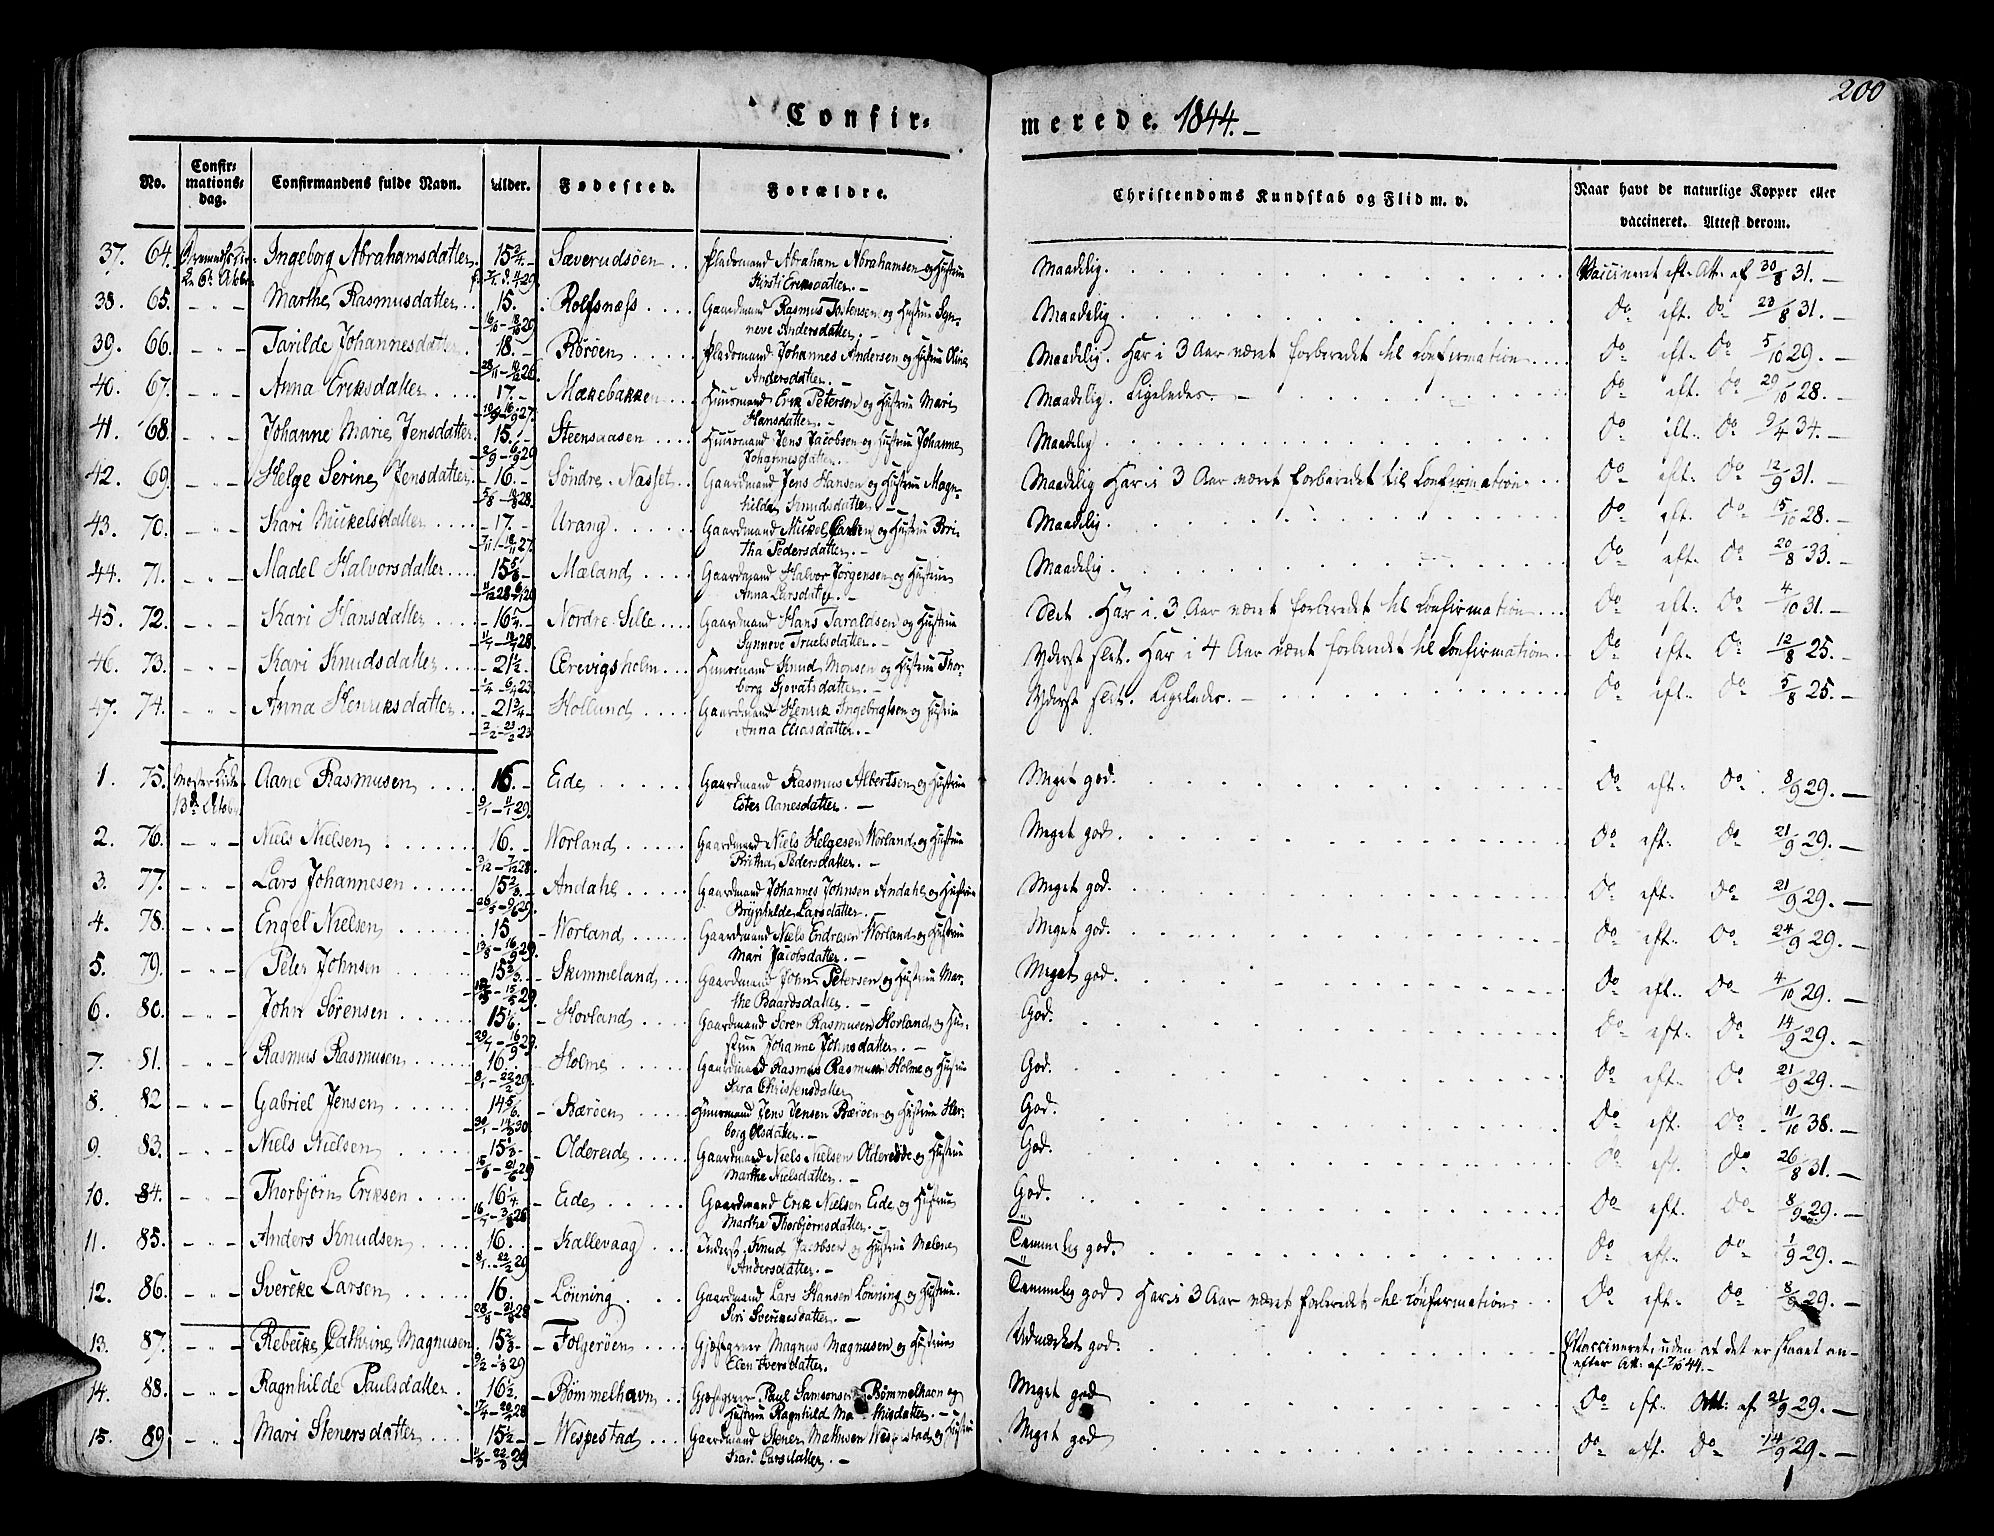 200
Confirmerede. 1844.
No. Confirmationsdag. Confirmandens fulde Navn. Alder. Fødested. Forældre. Christendoms Kundskab og Flid m. v. Naar havt de naturlige Kopper eller vaccineret. Attest derom.
37. 64. Ingeborg Abrahamsdatter 15 3/4 Sæverudsöen Pladsmand Abraham Abrahamsen og Hustrue Maadelig. Vaccineret eft. Att. af 30/8 31.
Kirsti Eriksdatter.
38. 65. Marthe Rasmusdatter 15. Rolfsnæss Gaardmand Rasmus Torstensen og Hustrue Syn- Maadelig. Do eft. Do 23/8 31.
neve Andersdatter.
39. 66. Tarilde Johannesdatter 18. Röröen Pladsmand Johannes Andersen og Hustrue Oline Maadelig. Har i 3 Aar været forberedet til Confirmation Do eft. Do 5/10 29.
Andersdatter.
40. 67. Anna Eriksdatter 17. Mækebakken Huusmand Erik Petersen og Hustrue Mari Maadelig. Ligeledes. Do eft. Do 29/10 28.
Hansdatter.
41. 68. Johanne Marie Jensdatter 15. Steensaasen Huusmand Jens Jacobsen og Hustrue Johanne Maadelig Do eft. Do 9/4 34.
Johannesdatter.
42. 69. Helge Serine Jensdatter 16. Söndre Nasset Gaardmand Jens Hansen og Hustrue Magn- Maadelig Har i 3 Aar været forberedet til Confirmation Do eft. Do 12/9 31.
hilde Knudsdatter.
43. 70. Kari Mickelsdatter 17. Urang Gaardmand Mickel Larsen og Hustrue Bri- Maadelig. Do eft. Do 15/10 28.
tha Pedersdatter.
44. 71. Madel Halvorsdatter 15 5/8 Mæland Gaardmand Halvor Jørgensen og Hustrue Maadelig. Do eft. Do 20/8 33.
Anna Larsdatter.
45. 72. Kari Hansdatter 16 1/4 Nordre Lille Gaardmand Hans Taraldsen og Hustrue Slet. Har i 3 Aar været forberedet til Confirmation Do eft. Do 4/10 31.
Synneve Truelsdatter.
46. 73. Kari Knudsdatter 21 1/2 Ærevigsholm Huusmand Knud Monsen og Hustrue Thor- Yderst slet. Har i 4 Aar været forberedet til Confirmation Do eft. Do 12/8 25.
borg Sjovatsdatter.
47. 74. Anna Henriksdatter 21 3/4 Hollund Gaardmand Henrik Ingebrigtsen og Hustrue Yderst slet. Ligeledes. Do eft. Do 5/8 25.
Anna Eliasdatter.
1. 75. Aane Rasmusen 16. Eide Gaardmand Rasmus Albertsen og Hustrue Meget god. Do eft. Do 8/9 29.
13de October 9/1 - 11/1 29. Ester Aanesdatter.
2. 76. Niels Nielsen 16. Worland Gaardmand Niels Helgesen Worland og Hustrue Meget god. Do eft. Do 21/9 29.
3/12 - 7/12 28. Britha Pedersdatter.
3. 77. Lars Johannesen 15 2/3 Andahl Gaardmand Johannes Johnsen Andahl og Hustrue Meget god. Do eft. Do 21/9 29.
Brynhilde Larsdatter.
4. 78. Engel Nielsen 15 Worland Gaardmand Niels Endresen Worland og Hustrue Meget god. Do eft. Do 24/9 29.
Mari Jacobsdatter.
5. 79. Peter Johnsen 15 2/3 Skimmeland Gaardmand John Petersen og Hustrue Mar- Meget god. Do eft. Do 4/10 29.
the Baardsdatter.
6. 80. John Sörensen 15 1/6 Hovland Gaardmand Sören Rasmusen Hovland og Hu- God. Do eft. Do 14/9 29.
strue Johanne Johnsdatter.
7. 81. Rasmus Rasmusen 16. Holme Gaardmand Rasmus Rasmusen Holme og Hustrue God. Do eft. Do 21/9 29.
8/1 - 22/2 29. Sara Christensdatter
8. 82 Gabriel Jensen 14 5/6 Bæröen Huusmand Jens Jensen Bæröen og Hustrue Her- God. Do eft. Do 11/10 38.
borg Olsdatter.
9. 83. Niels Nielsen 15 1/3 Oldereide Gaardmand Niels Nielsen Oldereide og Hustrue God. Do eft. Do 26/8 31.
Marthe Nielsdatter.
10. 84. Thorbjörn Eriksen 16 1/4 Eide Gaardmand Erik Nielsen Eide og Hustrue God. Do eft. Do 8/9 29.
Marthe Thorbjörnsdatter.
11. 85. Anders Knudsen 16. Kallevaag Inderst Knud Jacobsen og Hustrue Malene Temmelig god. Do eft. Do 1/9 29.
8/1 - 22/2 29 Andersdatter.
12. 86. Svercke Larsen 16. Lönning Gaardmand Lars Hansen Lönning og Hustrue Temmelig god Har i 3 Aar været forberedet til Confirmation Do eft. Do 8/9 29.
28/8 - 31/8 28 Siri Sverkesdatter.
13. 87. Rebecke Cathrine Magnusen 15 2/3 Folgeröen Gjæstgiver Magnus Magnusen og Hustrue Udmærket god. Vaccineret, uden at det er slaaet an
Elen Iversdatter. efter Att. af 7/10 44.
14. 88. Ragnhilde Paulsdatter 16 1/2 Bömmelhavn Gjæstgiver Paul Samsonsen Bömmelhavn og Meget god Do eft. Att. af 21/9 29.
Hustrue Ragnhild Mathisdatter.
15. 89 Mari Stenersdatter 15 1/2 Wespestad Gaardmand Stener Mathisen Wespestad og Hustrue Meget god Do eft. Do 14/9 29.
Larsdatter.